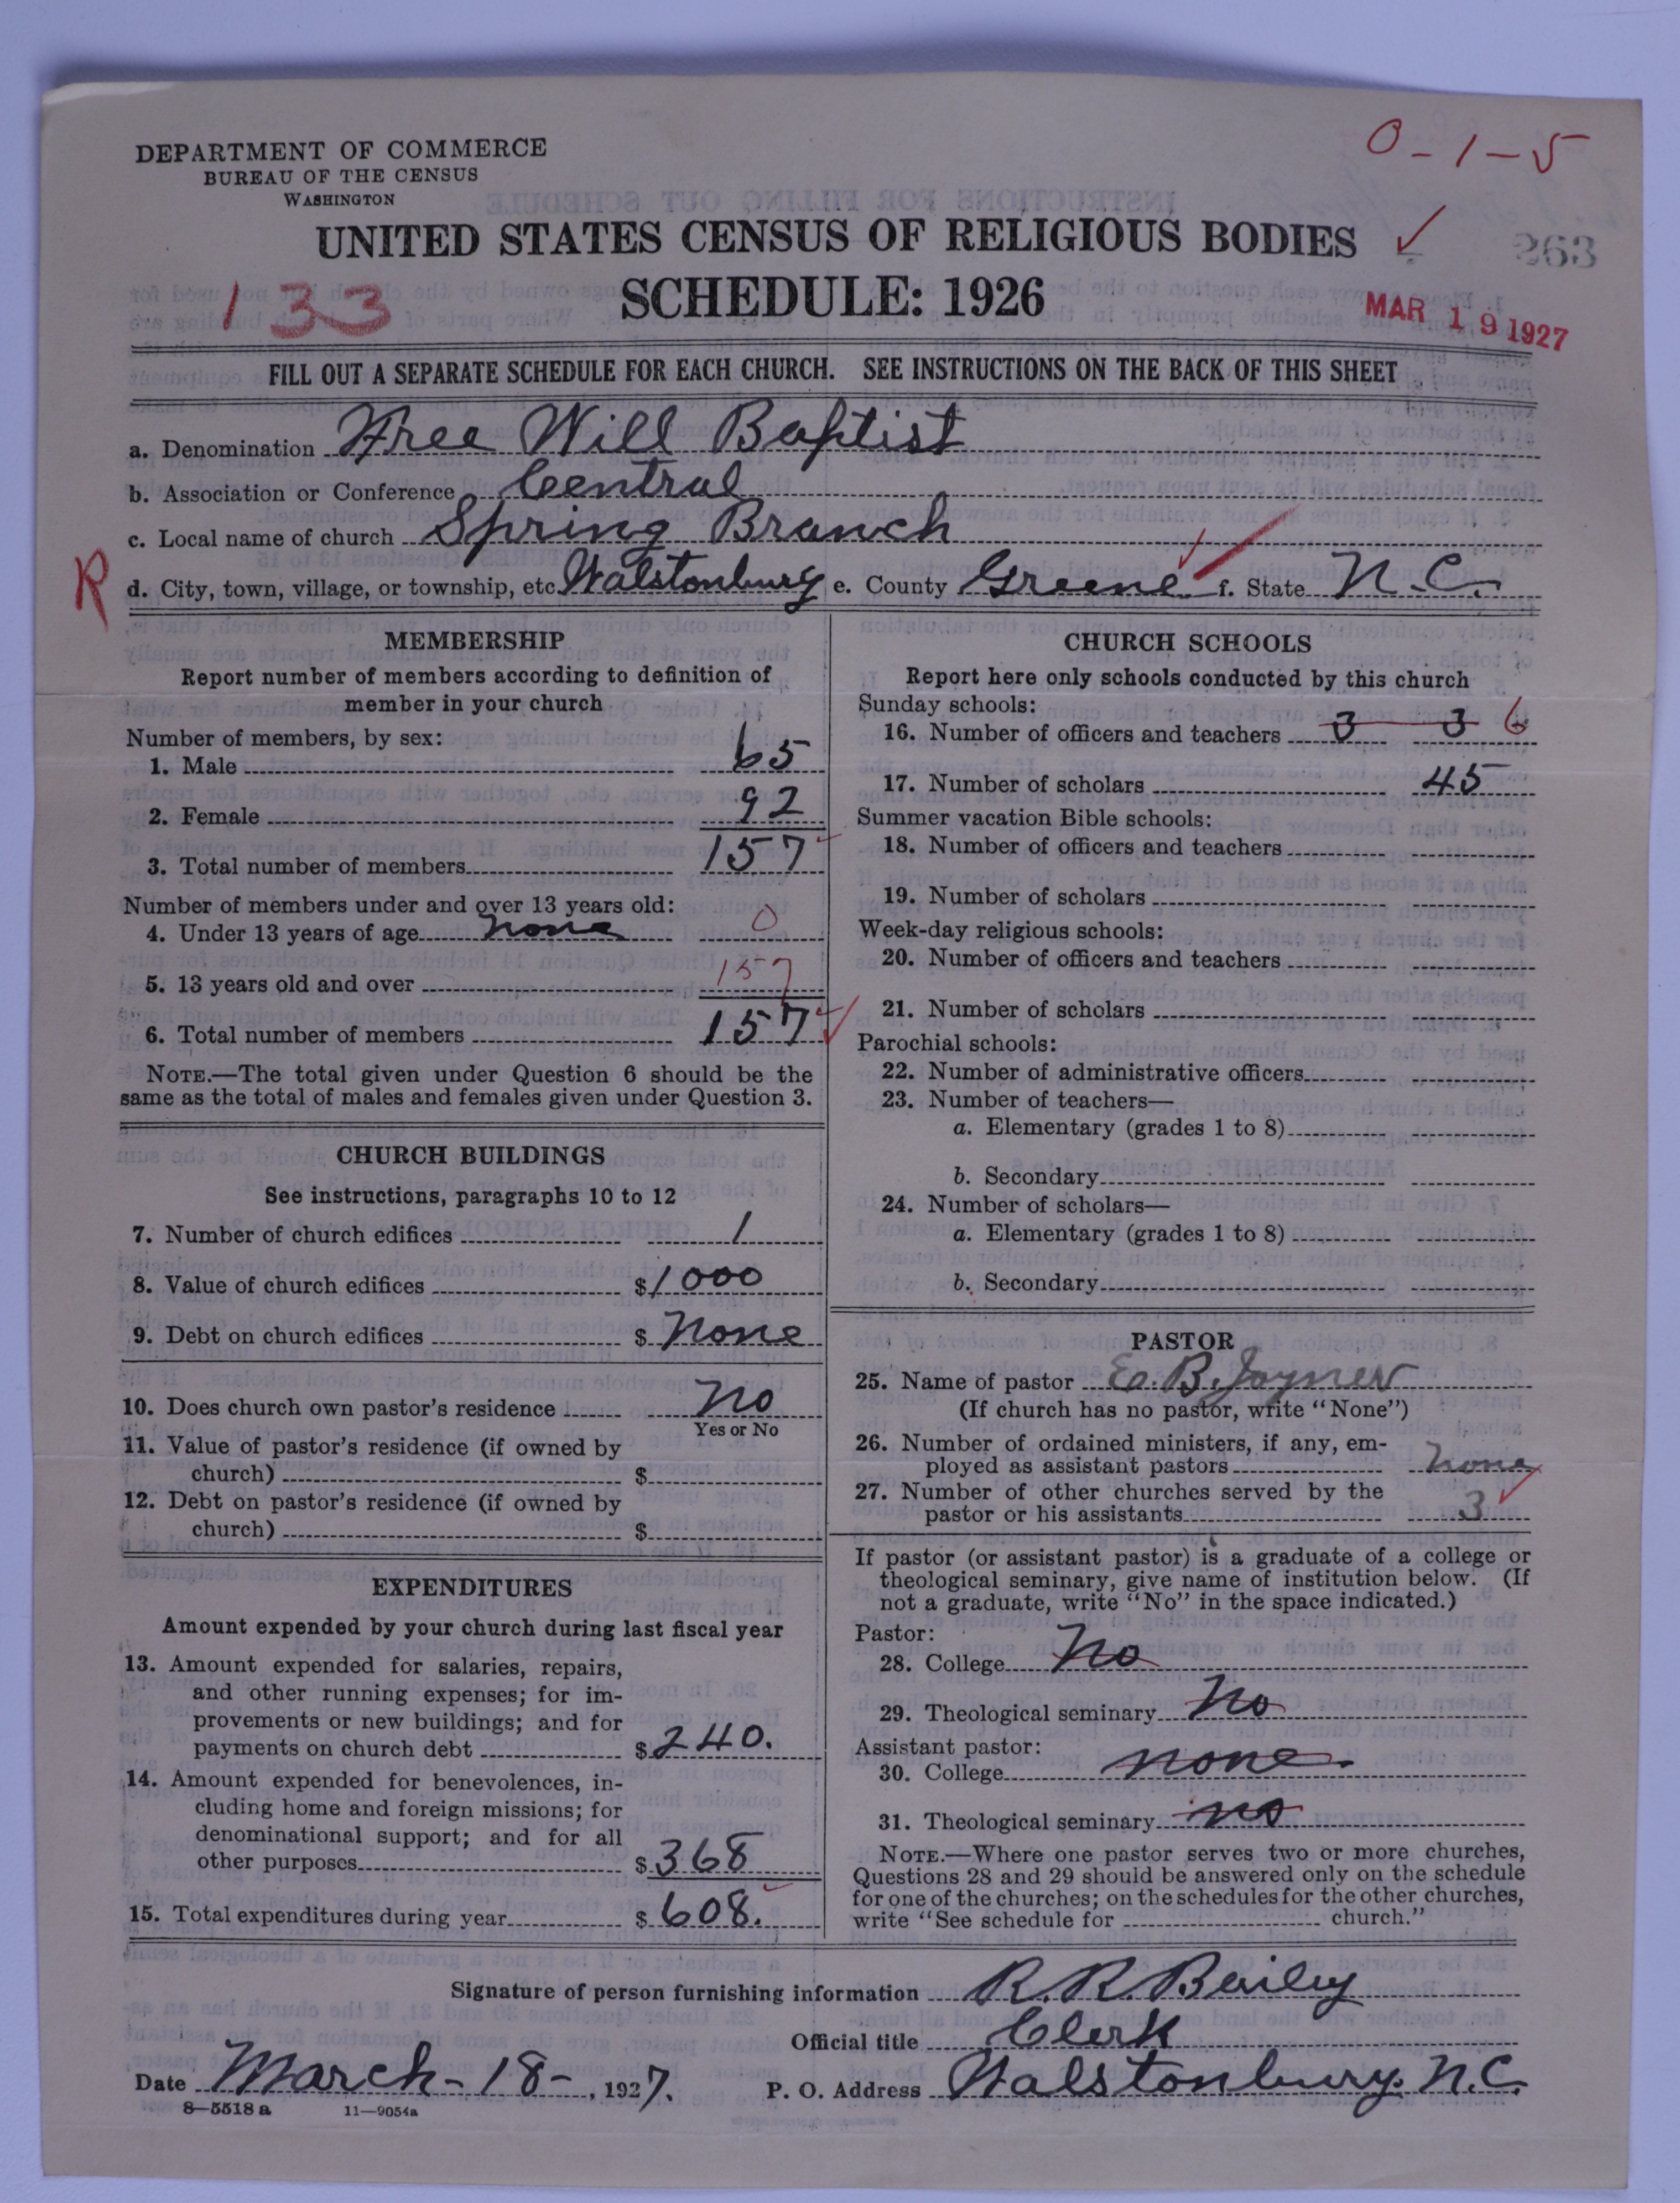 0-1-5
DEPARTMENT OF COMMERCE
BUREAU OF THE CENSUS
WASHINGTON
UNITED STATES CENSUS OF RELIGIOUS BODIES
263
133
SCHEDULE: 1926
MAR 19 1927
FILL OUT A SEPARATE SCHEDULE FOR EACH CHURCH. SEE INSTRUCTIONS ON THE BACK OF THIS SHEET
a. Denomination Free Will Baptist
b. Association or Conference Central
c. Local name of church Spring Branch
R d. City, town, village, or township, etc. Walstonburg e. County Greene f. State N.C.
MEMBERSHIP
Report number of members according to definition of
member in your church
Number of members, by sex:
1. Male 65
2. Female 92
3. Total number of members 157
Number of members under and over 13 years old:
4. Under 13 years of age none 0
5. 13 years old and over 157
6. Total number of members 157
NOTE.—The total given under Question 6 should be the
same as the total of males and females given under Question 3.
CHURCH BUILDINGS
See instructions, paragraphs 10 to 12
7. Number of church edifices 1
8. Value of church edifices $1000
9. Debt on church edifices $ None
10. Does church own pastor's residence No
Yes or No
11. Value of pastor's residence (if owned by
church) $
12. Debt on pastor's residence (if owned by
church) $
EXPENDITURES
Amount expended by your church during last fiscal year
13. Amount expended for salaries, repairs,
and other running expenses; for im-
provements or new buildings; and for
payments on church debt $240.
14. Amount expended for benevolences, in-
cluding home and foreign missions; for
denominational support; and for all
other purposes $368
15. Total expenditures during year $608.
CHURCH SCHOOLS
Report here only schools conducted by this church
Sunday schools:
16. Number of officers and teachers 3 3 6
17. Number of scholars 45
Summer vacation Bible schools:
18. Number of officers and teachers
19. Number of scholars
Week-day religious schools:
20. Number of officers and teachers
21. Number of scholars
Parochial schools:
22. Number of administrative officers
23. Number of teachers—
a. Elementary (grades 1 to 8)
b. Secondary
24. Number of scholars—
a. Elementary (grades 1 to 8)
b. Secondary
PASTOR
25. Name of pastor E. B. Joyner
(If church has no pastor, write "None")
26. Number of ordained ministers, if any, em-
ployed as assistant pastors None
27. Number of other churches served by the
pastor or his assistants 3
If pastor (or assistant pastor) is a graduate of a college or
theological seminary, give name of institution below. (If
not a graduate, write "No" in the space indicated.)
Pastor:
28. College No
29. Theological seminary No
Assistant pastor:
30. College none.
31. Theological seminary no
NOTE.—Where one pastor serves two or more churches,
Questions 28 and 29 should be answered only on the schedule
for one of the churches; on the schedules for the other churches,
write "See schedule for church."
Signature of person furnishing information R. R. Bailey
Official title Clerk
Date March-18-, 1927. P. O. Address Walstonburg. N.C.
8—5518a 11—9054a